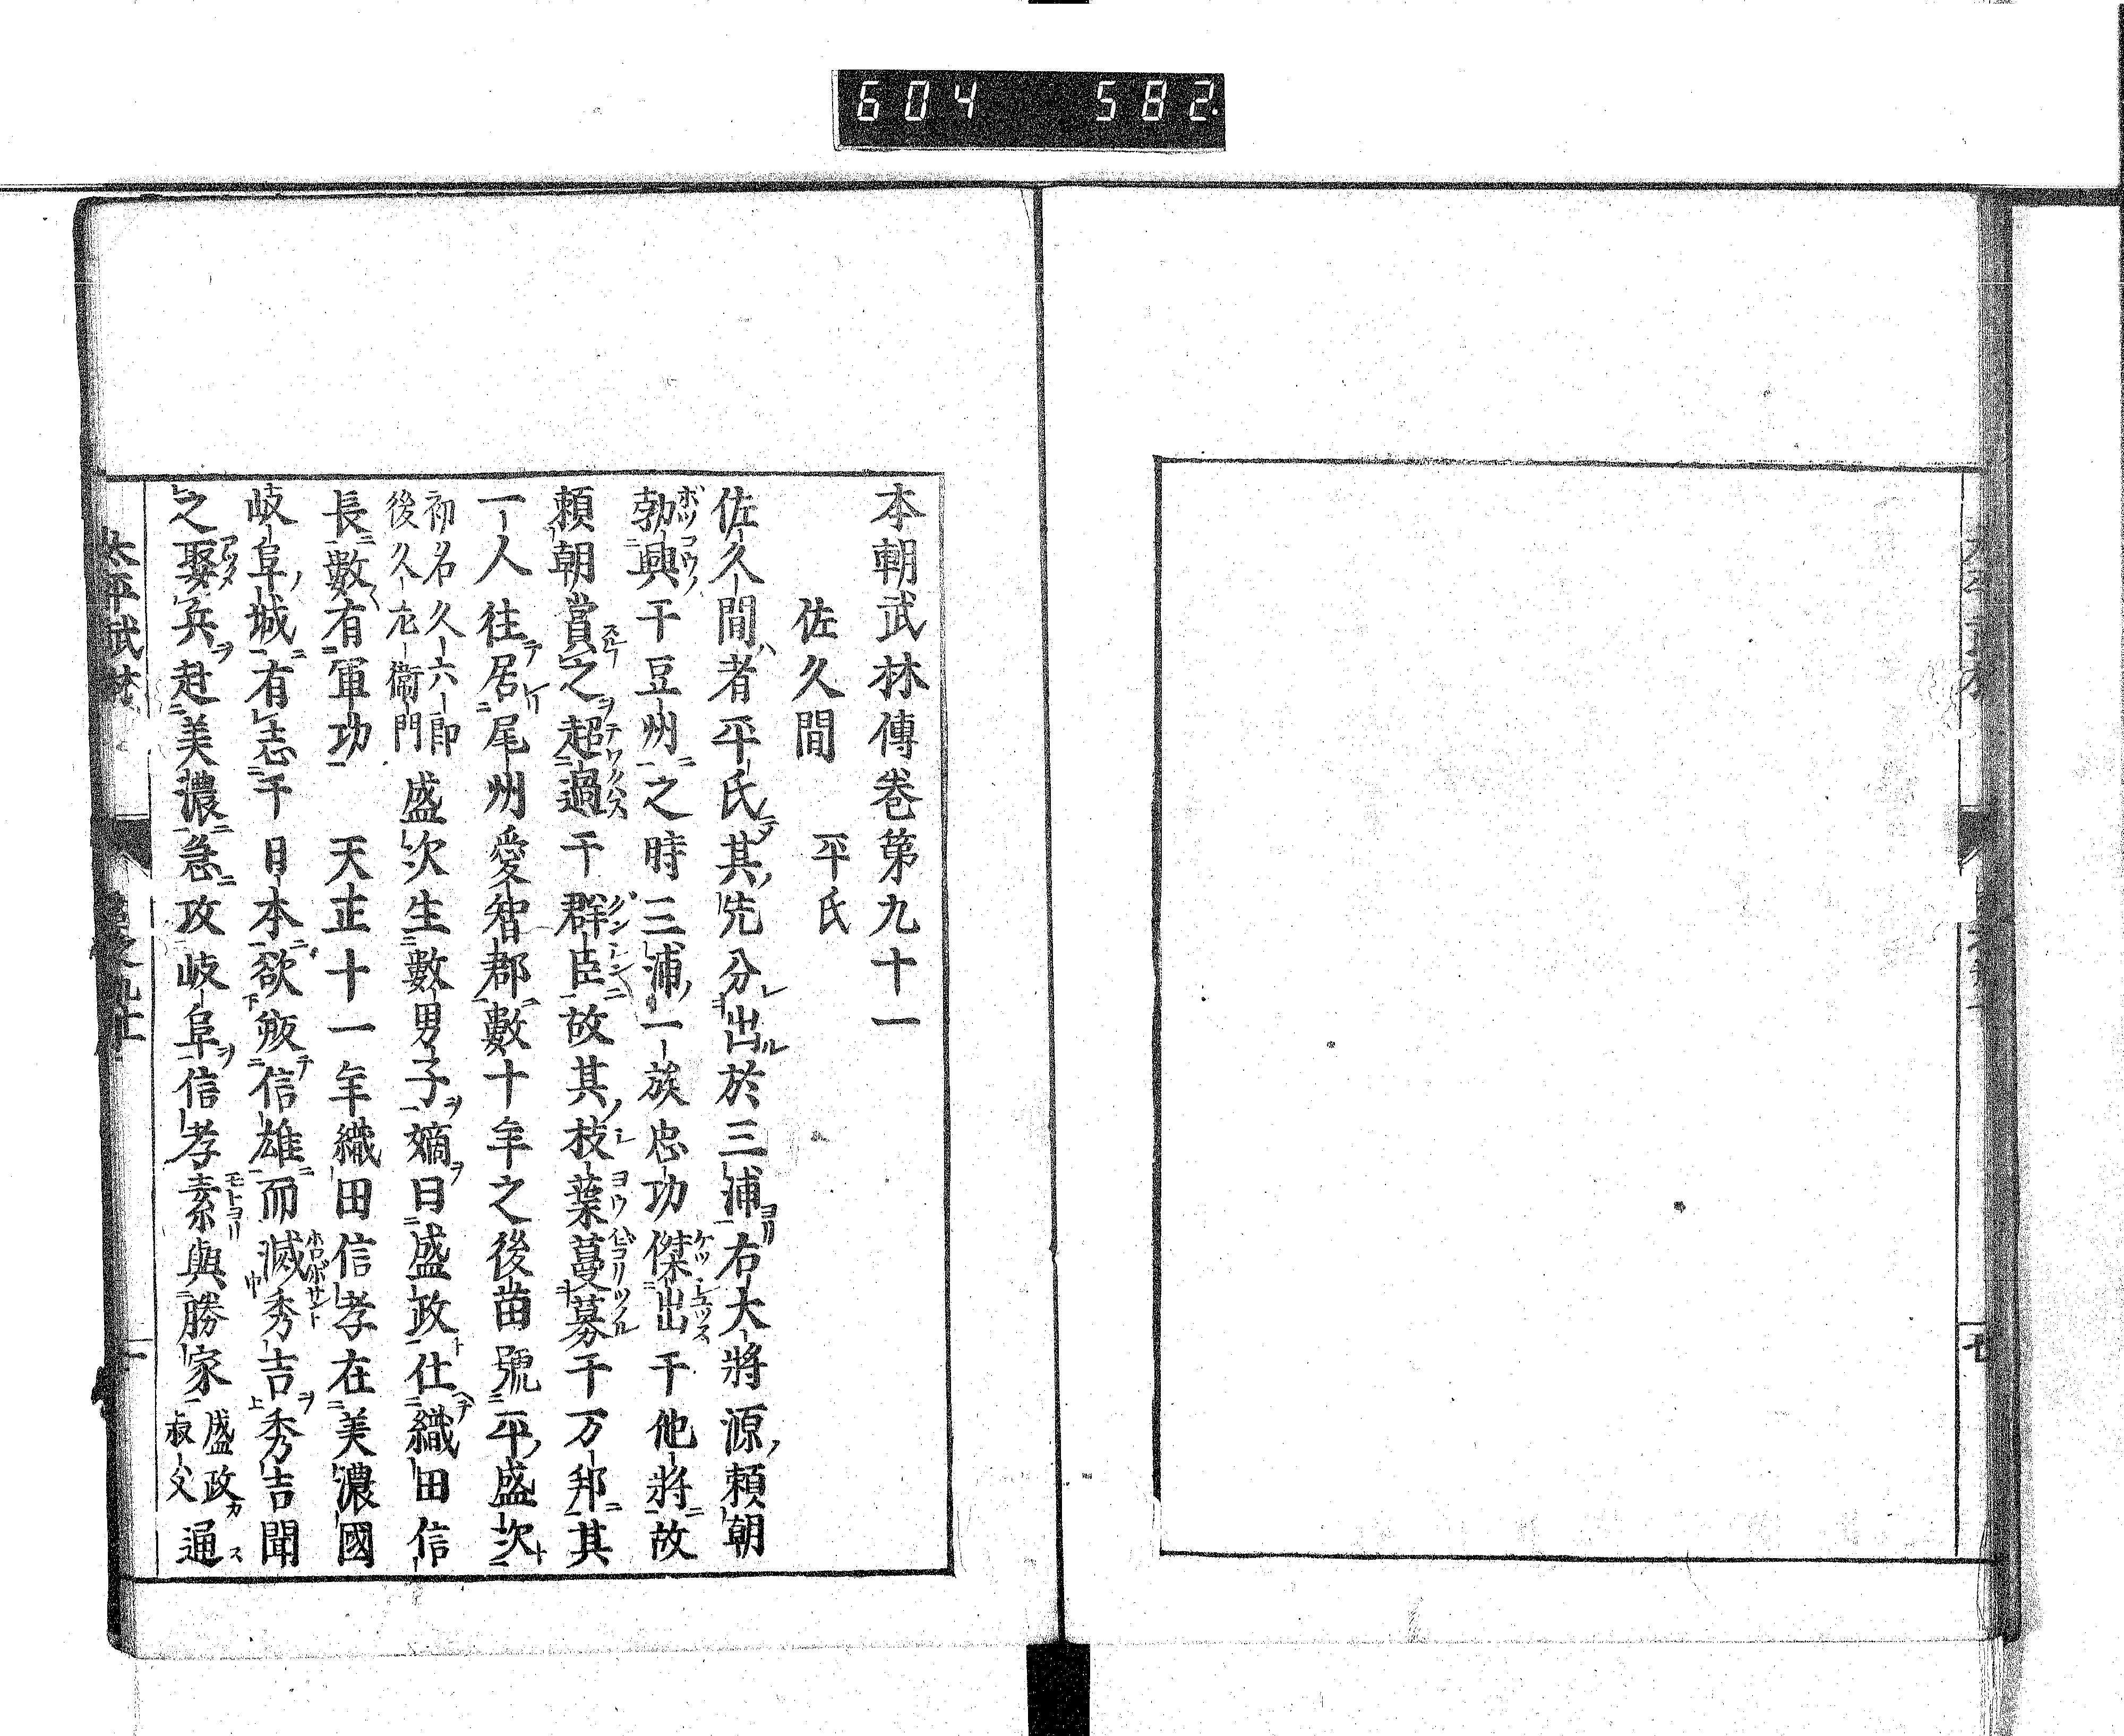 604 582
本朝武林傳巻第九十一
佐久間 平氏
佐久間者平氏其先分出於三浦右大將源頼朝
勃興于豆州之時三浦一族忠功傑出于他將故
頼朝賞之超過于群臣故其枝葉蔓蕃于万邦其
一人往居尾州愛智郡數十年之後苗號平盛次
初名久六郎
後久左衞門
盛次生數男子嫡曰盛政仕織田信
長數有軍功 天正十一年織田信孝在美濃國
岐阜城有志于日本欲叛信雄而滅秀吉秀吉聞
之聚兵赴美濃急攻岐阜信孝素與勝家
盛政
叔父
通